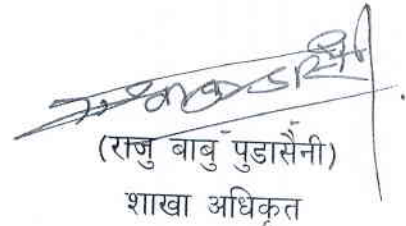 (राजु बाबु पुडासैनी)
शाखा अधिकृत